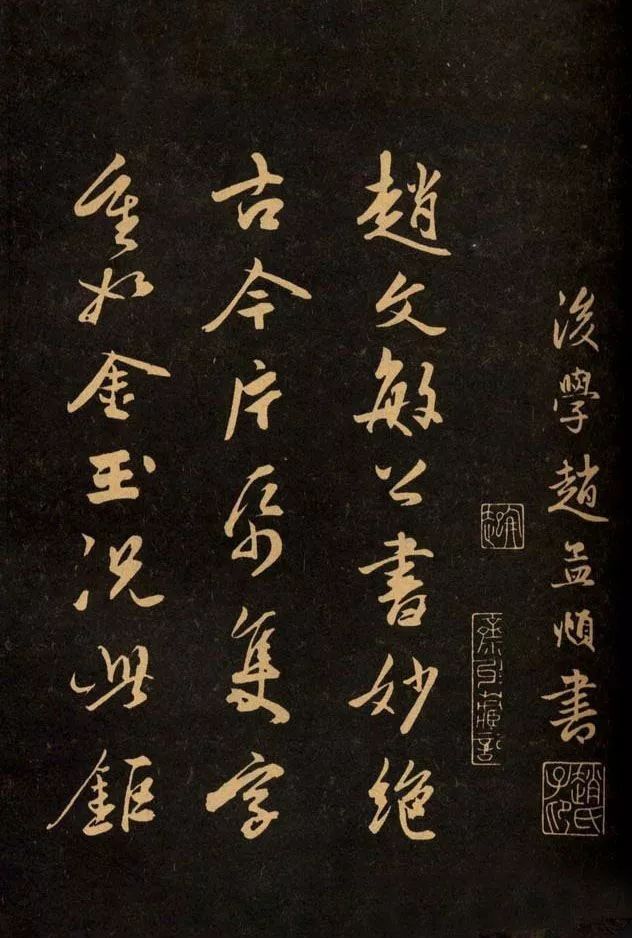 後學趙孟頫書
趙氏子昂
趙
趙文敏公書妙絶
古今片帋隻字
重如金玉況此鉅